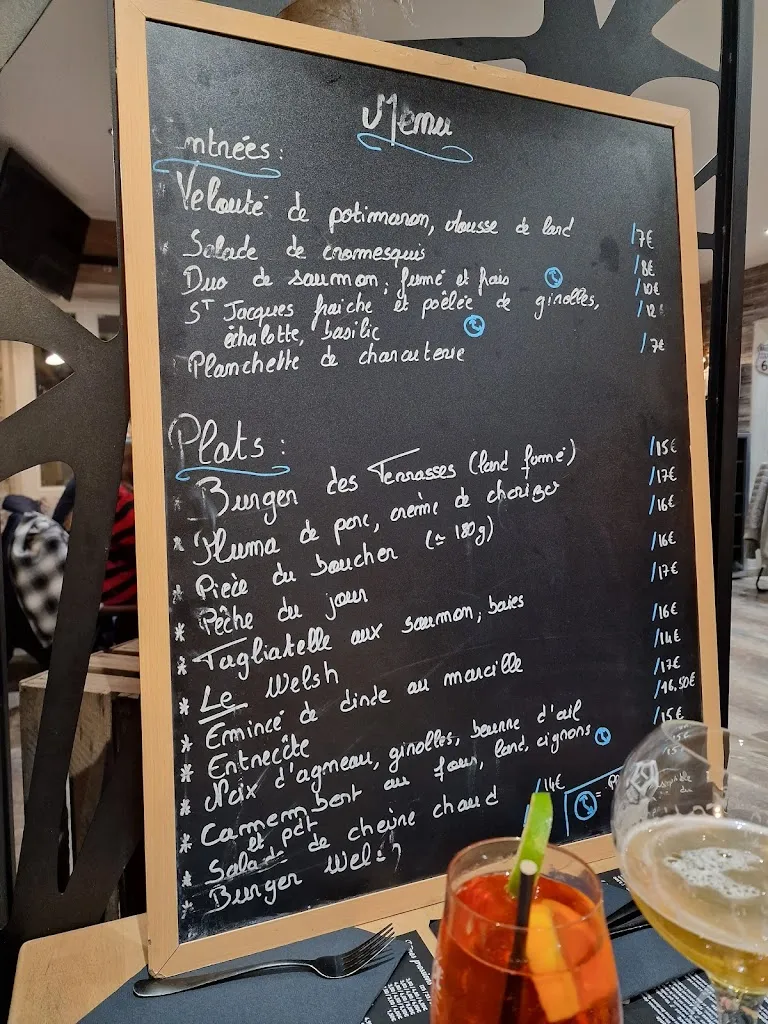 Menu
ntrées :
Velouté de potimaron, Mousse de lard /7€
Salade de cromesquis /8€
Duo de saumon, fumé et frais /10€
ST Jacques fraiche et poêlée de girolles, /12€
échalotte, basilic
Planchette de charcuterie /7€
Plats :
Burger des Terrasses (lard fumé) /15€
* Pluma de porc, crème de chorizo /17€
* Pièce du boucher (≃ 180g) /16€
* Pêche du jour /16€
* Tagliatelle aux saumon, baies /17€
* Le Welsh /16€
* Emincé de dinde au marcille /14€
* Entrecôte /17€
* Noix d'agneau, girolles, beurre d'ail /16,50€
* Camembert au four, lard, oignons /15€
et pdt
* Salade de chèvre chaud /14€
* Burger